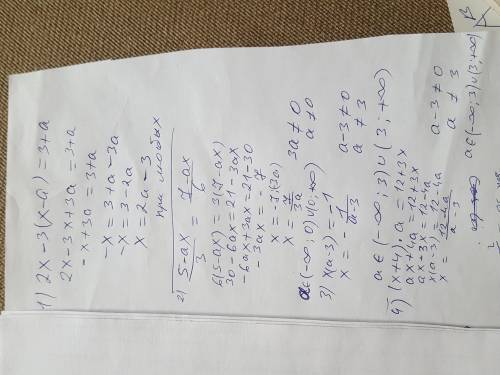 1) 2x-3(x-a)=3+a
2x-3x+3a=3+a
-x+3a=3+a
-x=3+a-3a
-x=3-2a
x=2a-3
при любых
2) (5-ax)/3 = (7-ax)/6
6(5-ax)=3(7-ax)
30-6ax=21-3ax
-6ax+3ax=21-30
-3ax=-7
x=-7:(3a)
x=7/3a 3a≠0
a≠0
a∈(-∞;0)∪(0;+∞)
3) x(a-3)=-1
x=-1/(a-3) a-3≠0
a≠3
a∈(-∞;3)∪(3;+∞)
4) (x+4)·a=12+3x
ax+4a=12+3x
a+3x=12-4a
x(a-3)=12-4a
x=(12-4a)/(a-3) a-3≠0
a≠3
a∈(-∞;3)∪(3;+∞)